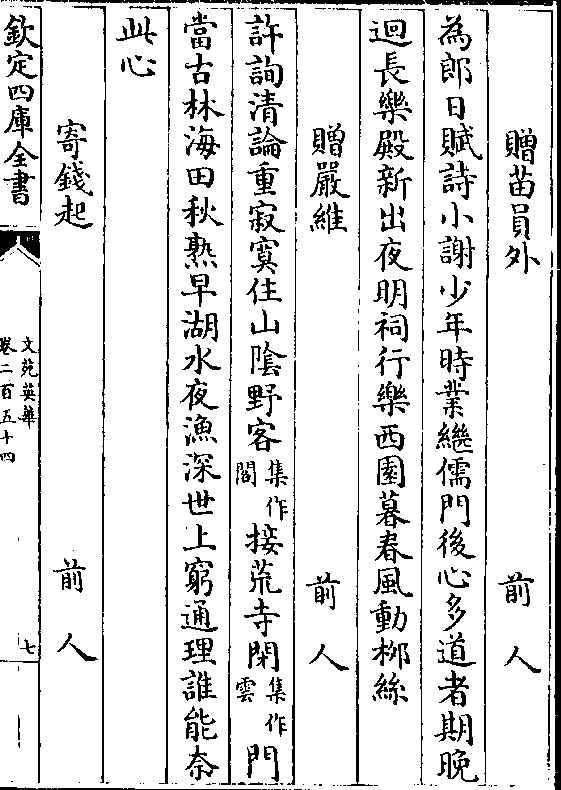 贈苗員外 前人
為郎日賦詩小謝少年時業繼儒門後心多道者期晚
迴長樂殿新出夜明祠行樂西園暮春風動栁絲
贈嚴維 前人
許詢清論重寂寞住山隂野客集作閣接荒寺閒集作雲門
當古林海田秋熟早湖水夜漁深世上窮通理誰能奈
此心
寄錢起 前人
欽定四庫全書 文苑英華 卷二百五十四 七